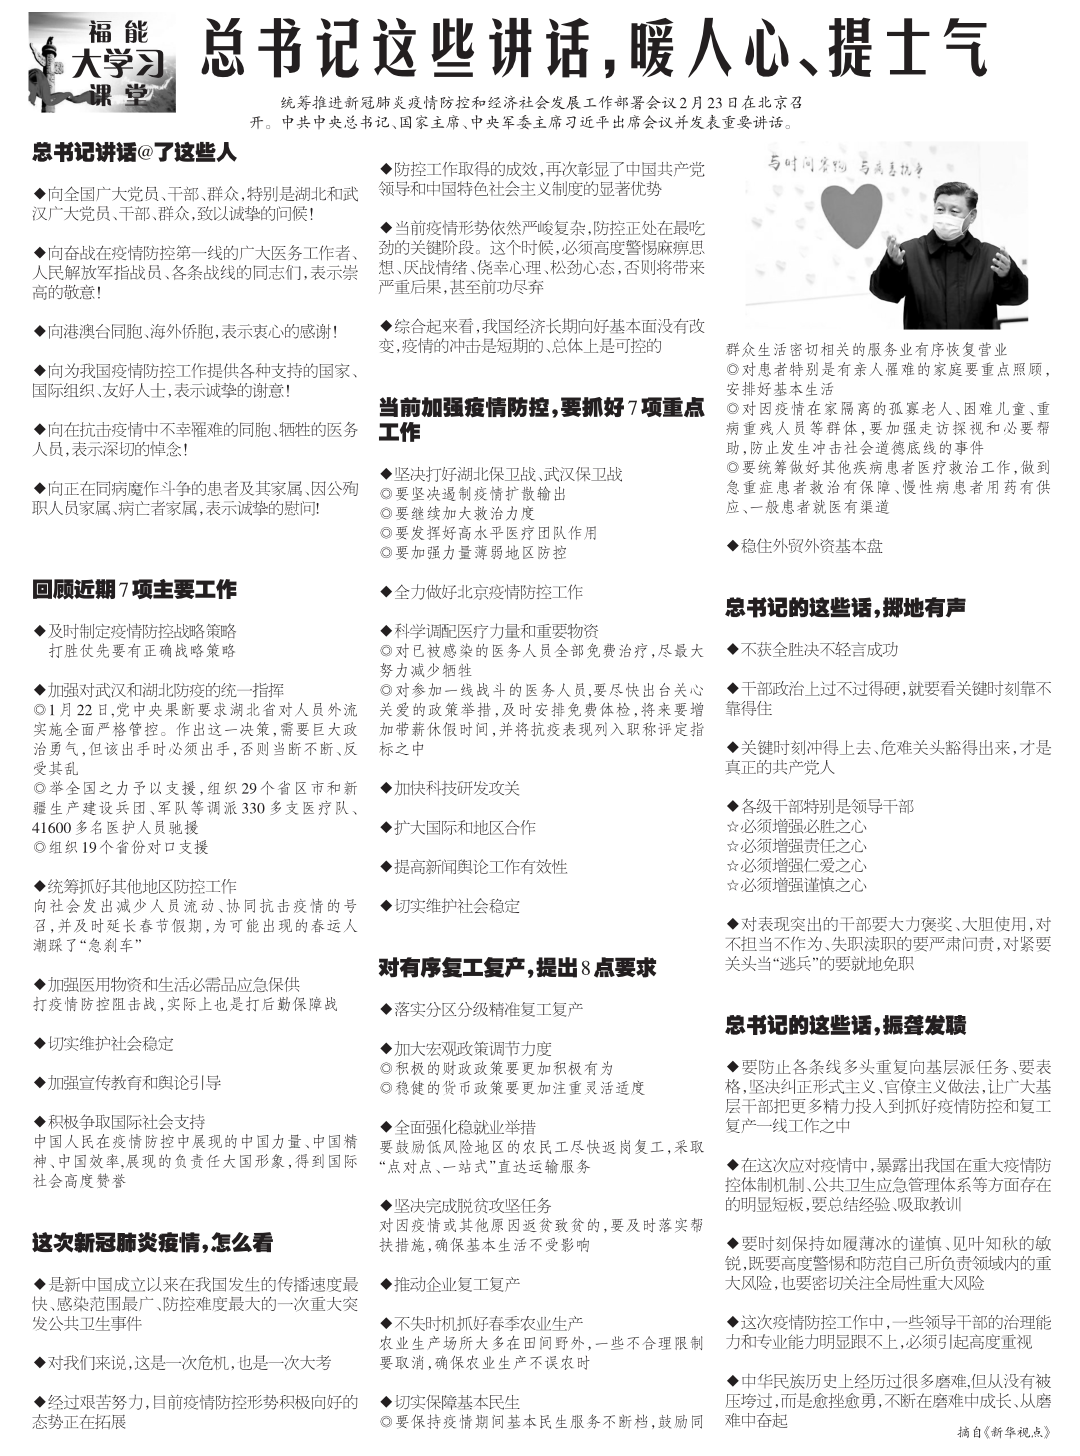 福能
大学习
课堂
总书记这些讲话,暖人心、提士气
统筹推进新冠肺炎疫情防控和经济社会发展工作部署会议2月23日在北京召
开。中共中央总书记、国家主席、中央军委主席习近平出席会议并发表重要讲话。
总书记讲话@了这些人
◆向全国广大党员、干部、群众,特别是湖北和武
汉广大党员、干部、群众,致以诚挚的问候!
◆向奋战在疫情防控第一线的广大医务工作者、
人民解放军指战员、各条战线的同志们,表示崇
高的敬意!
◆向港澳台同胞、海外侨胞,表示衷心的感谢!
◆向为我国疫情防控工作提供各种支持的国家、
国际组织、友好人士,表示诚挚的谢意!
◆向在抗击疫情中不幸罹难的同胞、牺牲的医务
人员,表示深切的悼念!
◆向正在同病魔作斗争的患者及其家属、因公殉
职人员家属、病亡者家属,表示诚挚的慰问!
回顾近期7项主要工作
◆及时制定疫情防控战略策略
打胜仗先要有正确战略策略
◆加强对武汉和湖北防疫的统一指挥
◎1月22日,党中央果断要求湖北省对人员外流
实施全面严格管控。作出这一决策,需要巨大政
治勇气,但该出手时必须出手,否则当断不断、反
受其乱
◎举全国之力予以支援,组织29个省区市和新
疆生产建设兵团、军队等调派330多支医疗队、
41600多名医护人员驰援
◎组织19个省份对口支援
◆统筹抓好其他地区防控工作
向社会发出减少人员流动、协同抗击疫情的号
召,并及时延长春节假期,为可能出现的春运人
潮踩了“急刹车”
◆加强医用物资和生活必需品应急保供
打疫情防控阻击战,实际上也是打后勤保障战
◆切实维护社会稳定
◆加强宣传教育和舆论引导
◆积极争取国际社会支持
中国人民在疫情防控中展现的中国力量、中国精
神、中国效率,展现的负责任大国形象,得到国际
社会高度赞誉
这次新冠肺炎疫情,怎么看
◆是新中国成立以来在我国发生的传播速度最
快、感染范围最广、防控难度最大的一次重大突
发公共卫生事件
◆对我们来说,这是一次危机,也是一次大考
◆经过艰苦努力,目前疫情防控形势积极向好的
态势正在拓展
◆防控工作取得的成效,再次彰显了中国共产党
领导和中国特色社会主义制度的显著优势
◆当前疫情形势依然严峻复杂,防控正处在最吃
劲的关键阶段。这个时候,必须高度警惕麻痹思
想、厌战情绪、侥幸心理、松劲心态,否则将带来
严重后果,甚至前功尽弃
◆综合起来看,我国经济长期向好基本面没有改
变,疫情的冲击是短期的、总体上是可控的
当前加强疫情防控,要抓好7项重点
工作
◆坚决打好湖北保卫战、武汉保卫战
◎要坚决遏制疫情扩散输出
◎要继续加大救治力度
◎要发挥好高水平医疗团队作用
◎要加强力量薄弱地区防控
◆全力做好北京疫情防控工作
◆科学调配医疗力量和重要物资
◎对已被感染的医务人员全部免费治疗,尽最大
努力减少牺牲
◎对参加一线战斗的医务人员,要尽快出台关心
关爱的政策举措,及时安排免费体检,将来要增
加带薪休假时间,并将抗疫表现列入职称评定指
标之中
◆加快科技研发攻关
◆扩大国际和地区合作
◆提高新闻舆论工作有效性
◆切实维护社会稳定
对有序复工复产,提出8点要求
◆落实分区分级精准复工复产
◆加大宏观政策调节力度
◎积极的财政政策要更加积极有为
◎稳健的货币政策要更加注重灵活适度
◆全面强化稳就业举措
要鼓励低风险地区的农民工尽快返岗复工,采取
“点对点、一站式”直达运输服务
◆坚决完成脱贫攻坚任务
对因疫情或其他原因返贫致贫的,要及时落实帮
扶措施,确保基本生活不受影响
◆推动企业复工复产
◆不失时机抓好春季农业生产
农业生产场所大多在田间野外,一些不合理限制
要取消,确保农业生产不误农时
◆切实保障基本民生
◎要保持疫情期间基本民生服务不断档,鼓励同
与时间赛跑 与病毒抗争
群众生活密切相关的服务业有序恢复营业
◎对患者特别是有亲人罹难的家庭要重点照顾,
安排好基本生活
◎对因疫情在家隔离的孤寡老人、困难儿童、重
病重残人员等群体,要加强走访探视和必要帮
助,防止发生冲击社会道德底线的事件
◎要统筹做好其他疾病患者医疗救治工作,做到
急重症患者救治有保障、慢性病患者用药有供
应、一般患者就医有渠道
◆稳住外贸外资基本盘
总书记的这些话,掷地有声
◆不获全胜决不轻言成功
◆干部政治上过不过得硬,就要看关键时刻靠不
靠得住
◆关键时刻冲得上去、危难关头豁得出来,才是
真正的共产党人
◆各级干部特别是领导干部
☆必须增强必胜之心
☆必须增强责任之心
☆必须增强仁爱之心
☆必须增强谨慎之心
◆对表现突出的干部要大力褒奖、大胆使用,对
不担当不作为、失职渎职的要严肃问责,对紧要
关头当“逃兵”的要就地免职
总书记的这些话,振聋发聩
◆要防止各条线多头重复向基层派任务、要表
格,坚决纠正形式主义、官僚主义做法,让广大基
层干部把更多精力投入到抓好疫情防控和复工
复产一线工作之中
◆在这次应对疫情中,暴露出我国在重大疫情防
控体制机制、公共卫生应急管理体系等方面存在
的明显短板,要总结经验、吸取教训
◆要时刻保持如履薄冰的谨慎、见叶知秋的敏
锐,既要高度警惕和防范自己所负责领域内的重
大风险,也要密切关注全局性重大风险
◆这次疫情防控工作中,一些领导干部的治理能
力和专业能力明显跟不上,必须引起高度重视
◆中华民族历史上经历过很多磨难,但从没有被
压垮过,而是愈挫愈勇,不断在磨难中成长、从磨
难中奋起
摘自《新华视点》